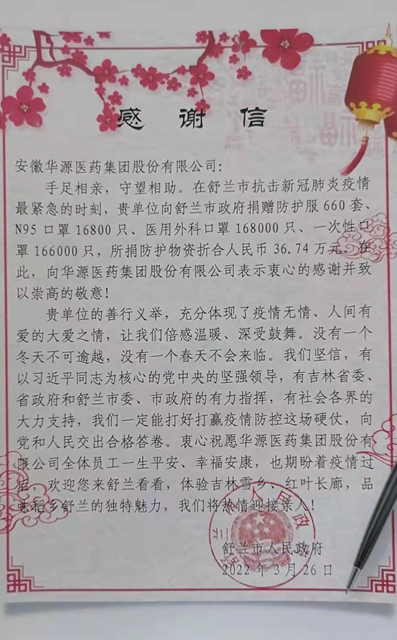 感 谢 信
安徽华源医药集团股份有限公司：
手足相亲，守望相助。在舒兰市抗击新冠肺炎疫情
最紧急的时刻，贵单位向舒兰市政府捐赠防护服 660 套、
N95 口罩 16800 只、医用外科口罩 168000 只、一次性口
罩 166000 只，所捐防护物资折合人民币 36.74 万元。在
此，向华源医药集团股份有限公司表示衷心的感谢并致
以崇高的敬意！
贵单位的善行义举，充分体现了疫情无情、人间有
爱的大爱之情，让我们倍感温暖、深受鼓舞。没有一个
冬天不可逾越，没有一个春天不会来临。我们坚信，有
以习近平同志为核心的党中央的坚强领导，有吉林省委、
省政府和舒兰市委、市政府的有力指挥，有社会各界的
大力支持，我们一定能打好打赢疫情防控这场硬仗，向
党和人民交出合格答卷。衷心祝愿华源医药集团股份有
限公司全体员工一生平安、幸福安康，也期盼着疫情过
后，欢迎您来舒兰看看，体验吉林雪乡、红叶长廊，品
味稻乡舒兰的独特魅力，我们将热情迎接亲人！
舒兰市人民政府
2022 年 3 月 26 日